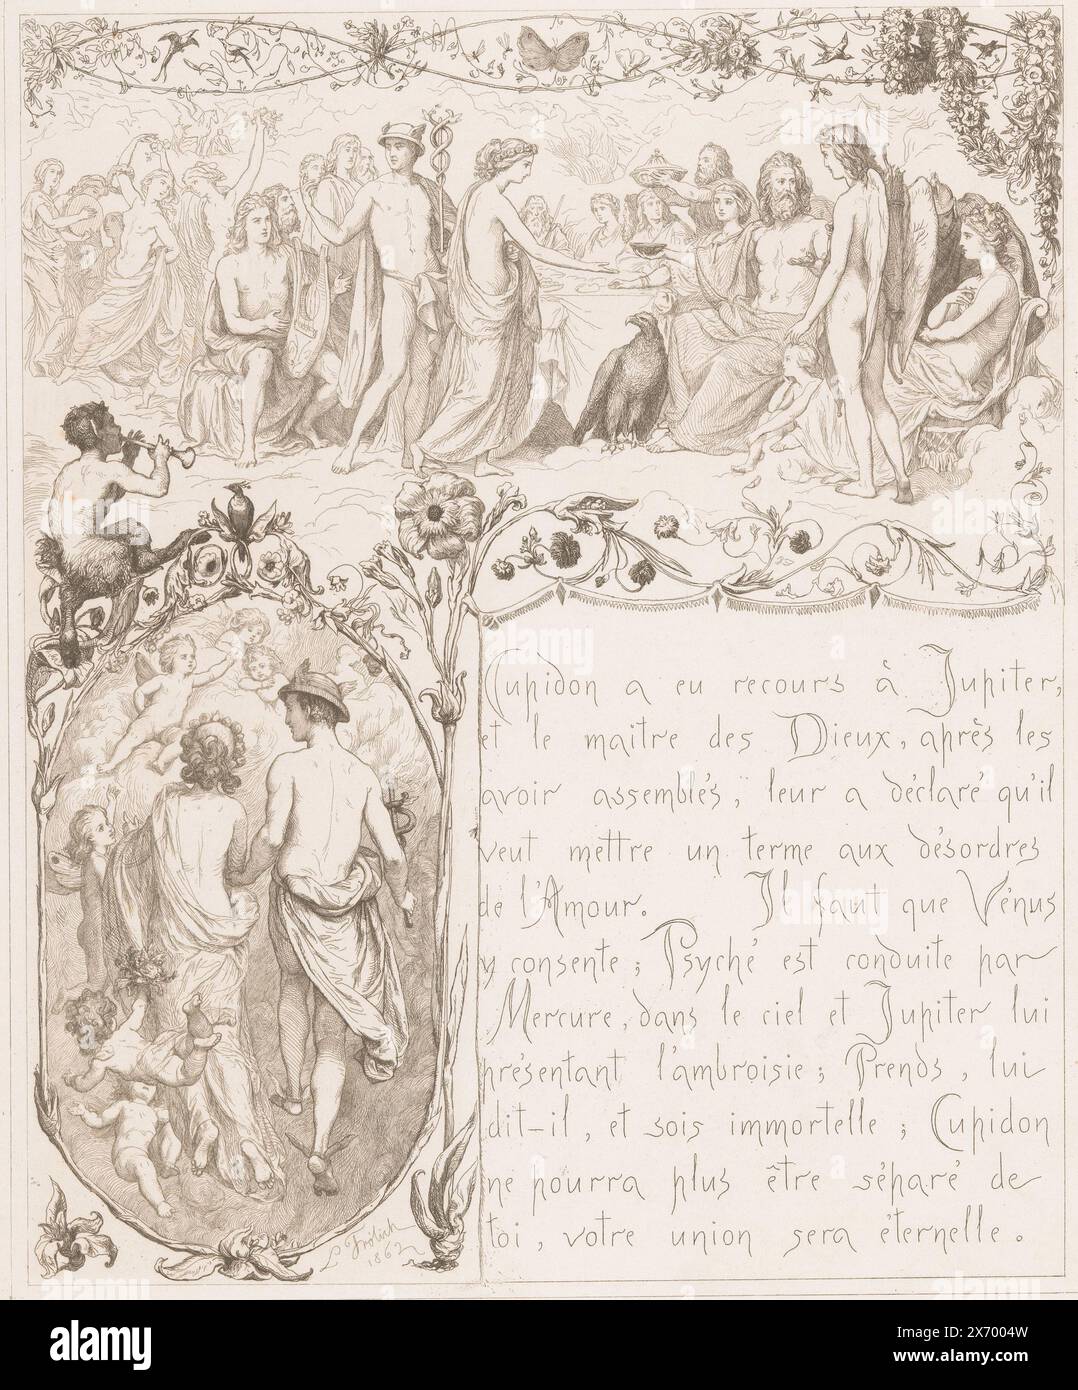 Cupidon a eu recours à Jupiter,
et le maître des Dieux, après les
avoir assemblés, leur a déclaré qu'il
veut mettre un terme aux désordres
de l'Amour. Il faut que Vénus
y consente; Psyché est conduite par
Mercure, dans le ciel et Jupiter lui
présentant l'ambroisie; Prends, lui
dit-il, et sois immortelle; Cupidon
ne pourra plus être séparé de
toi, votre union sera éternelle.
L Frölich
1862
alamy
Image ID: 2X7004W
www.alamy.com